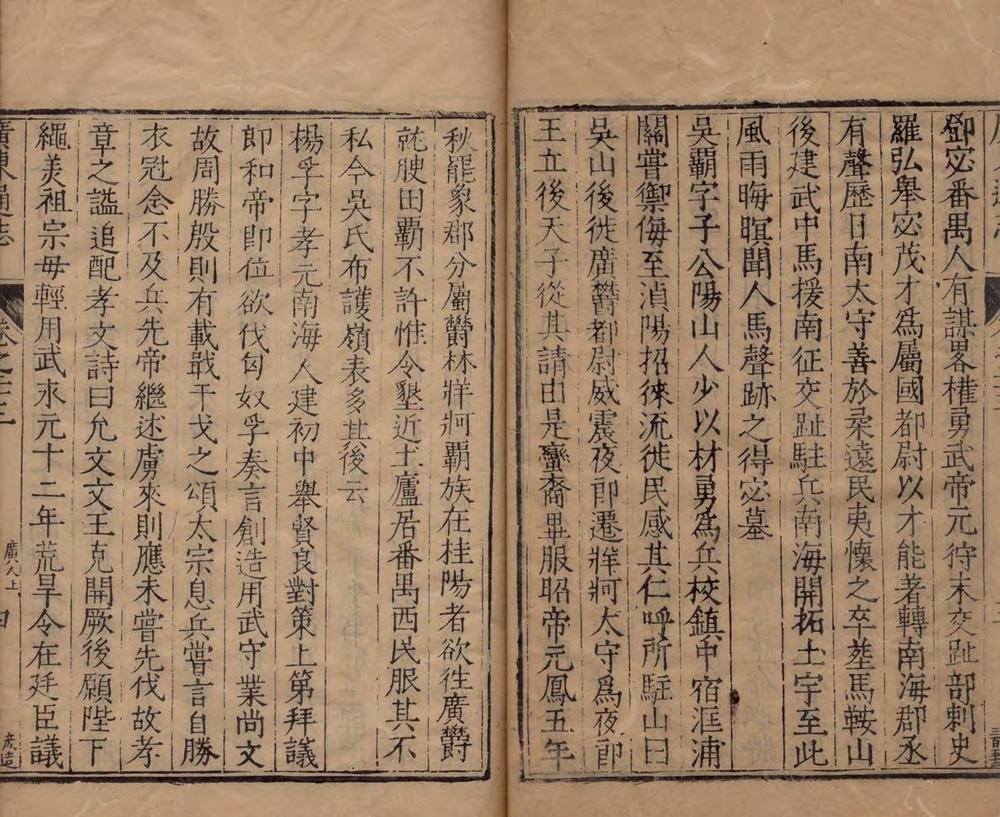 鄧宓番禺人有謀畧權勇武帝元狩末交趾部刺史
羅弘舉宓茂才爲屬國都尉以才能著轉南海郡丞
有聲歷日南太守善於柔遠民夷懷之卒塟馬鞍山
後建武中馬援南征交趾駐兵南海開拓土宇至此
風雨晦暝聞人馬聲跡之得宓墓
吳霸字子公陽山人少以材勇爲兵校鎮中宿洭浦
關嘗禦侮至湞陽招徠流徙民感其仁呼所駐山曰
吳山後徙廣鬱都尉威震夜郎遷牂牁太守爲夜郎
王立後天子從其請由是蠻裔畢服昭帝元鳳五年
秋罷象郡分屬鬱林牂牁霸族在桂陽者欲往廣鬱
就腴田霸不許惟令墾近土廬居番禺西民服其不
私今吳氏布護嶺表多其後云
楊孚字孝元南海人建初中舉賢良對策上第拜議
郎和帝即位欲伐匈奴孚奏言創造用武守業尚文
故周勝殷則有載戢干戈之頌太宗息兵嘗言自勝
衣冠念不及兵先帝繼述虜來則應未嘗先伐故孝
章之謚追配孝文詩曰允文文王克開厥後願陛下
繩美祖宗毋輕用武永元十二年荒旱令在廷臣議
廣東通志
卷之
廣八上
四